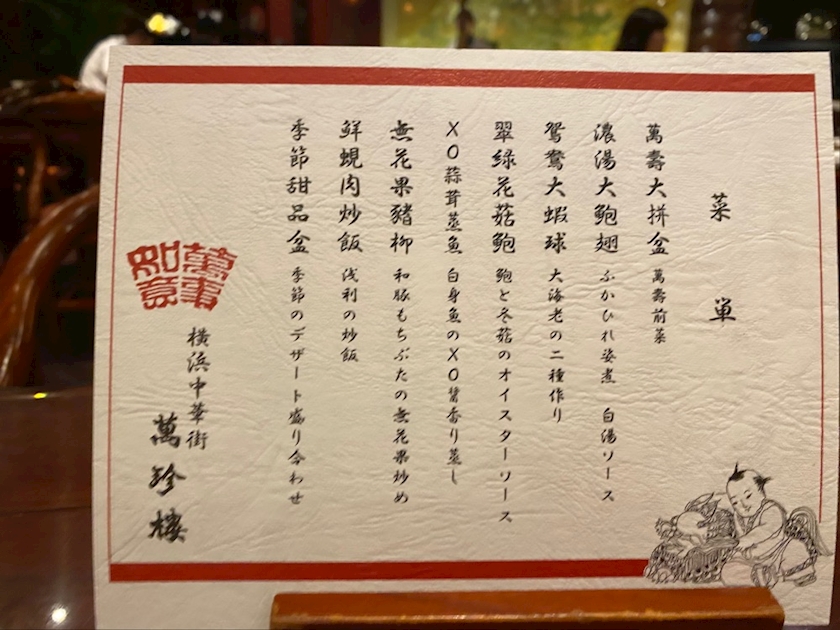 菜単
萬壽大拼盆 萬壽前菜
濃湯大鮑翅 ふかひれ姿煮 白湯ソース
鴛鴦大蝦球 大海老の二種作り
翠綠花菇鮑 鮑と冬菇のオイスターソース
XO蒜茸蒸魚 白身魚のXO醤香り蒸し
無花果豬柳 和豚もちぶたの無花果炒め
鮮蜆肉炒飯 浅利の炒飯
季節甜品盆 季節のデザート盛り合わせ
萬事如意
横浜中華街
萬珍樓